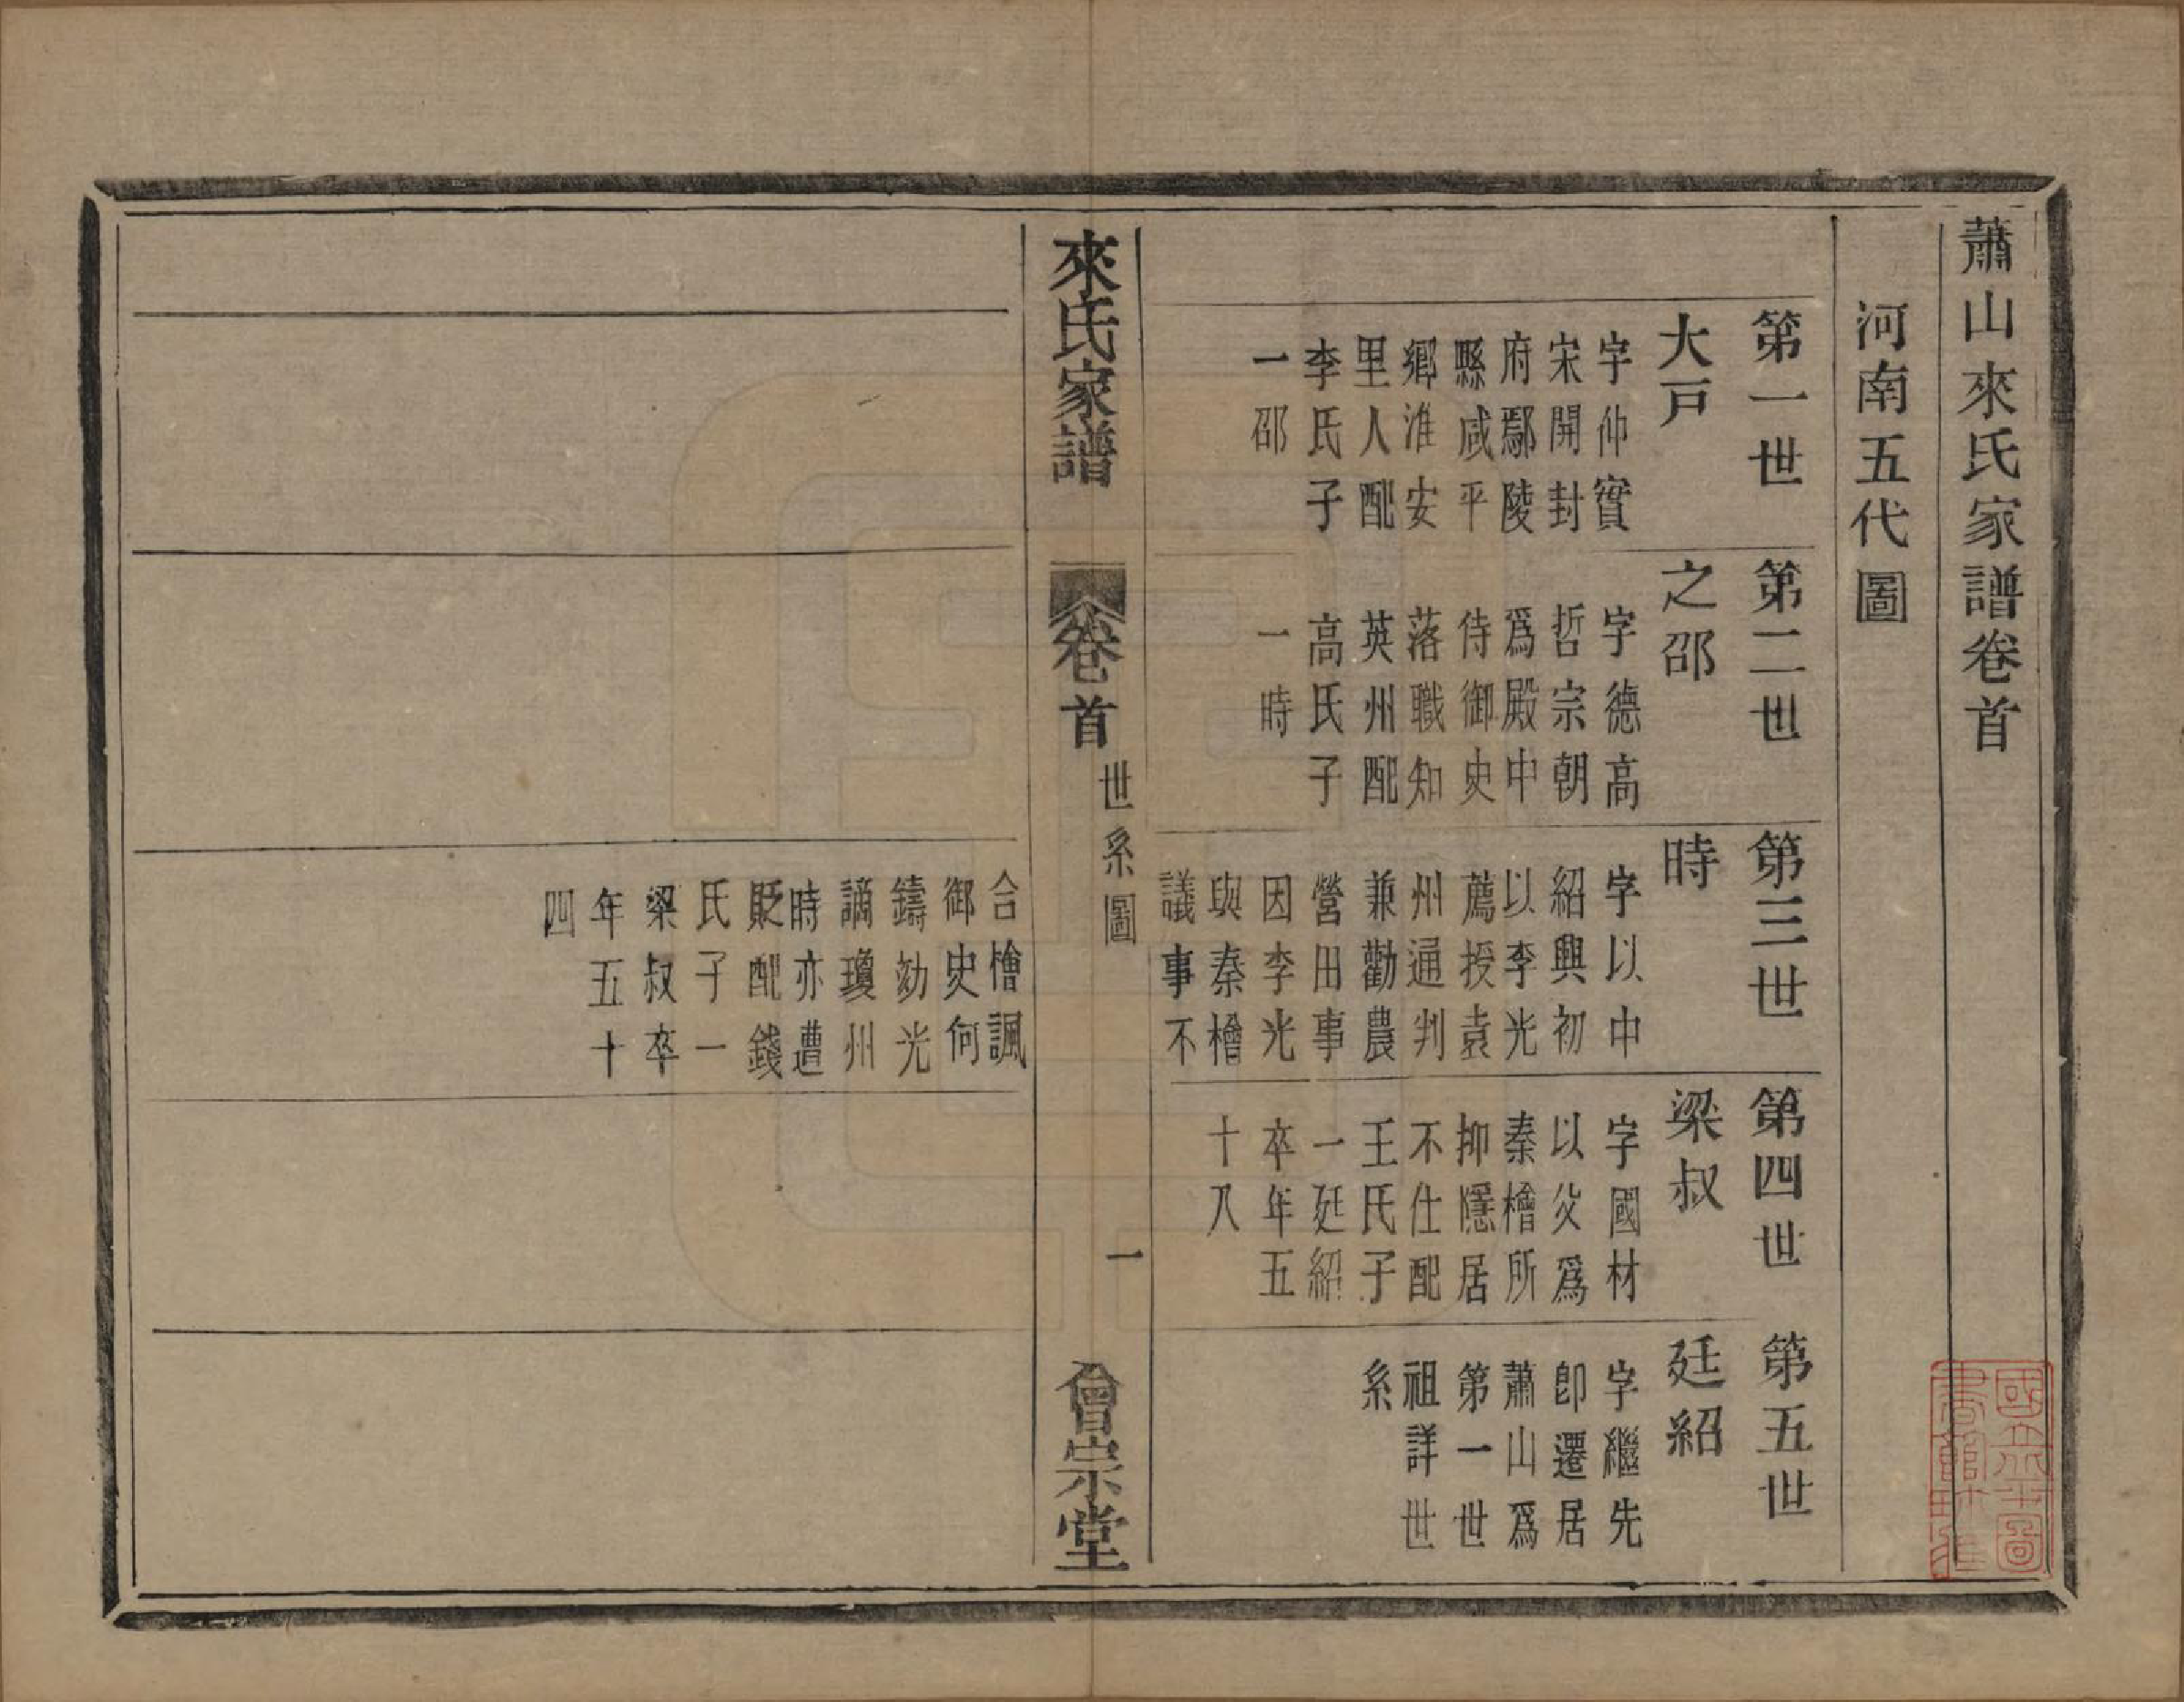 蕭山來氏家譜卷首
河南五代圖
第一世
大戸
字仲實
宋開封
府鄢陵
縣咸平
鄉淮安
里人配
李氏子
一邵
第二世
之邵
字德高
哲宗朝
爲殿中
侍御史
落職知
英州配
高氏子
一時
第三世
時
字以中
紹興初
以李光
薦授袁
州通判
兼勸農
營田事
因李光
與秦檜
議事不
合檜諷
御史何
鑄劾光
謫瓊州
時亦遭
貶配錢
氏子一
梁叔卒
年五十
四
第四世
梁叔
字國材
以父爲
秦檜所
抑隱居
不仕配
王氏子
一廷紹
卒年五
十八
第五世
廷紹
字繼先
卽遷居
蕭山爲
第一世
祖詳世
系
來氏家譜
卷首
世系圖
一
會宗堂